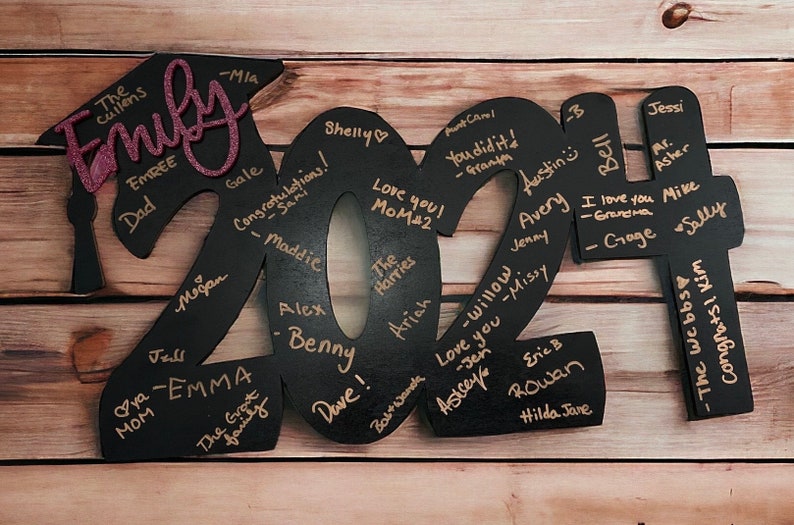 Emily
The
Cullens
-Mia
EMREE
Gale
Dad
Megan
Jess
-EMMA
♡ya
MOM
The Grant
family
Shelly♡
Congratulations!
-Sami
-Maddie
Love you!
MOM#2
The
Harries
Alex
-Benny
Ariah
Dave!
Bob+Wanda
Aunt Carol
You did it!
-Grandpa
Austin
Avery
Jenny
-Willow
-Missy
Love you
-Jen
Ashley
Eric B
Rowan
Hilda Jane
B
Bell
I love you
-Grandma
-Gage
Jessi
Mr.
Asher
Mike
♡Sally
-The Webbs♡
Congrats! Kim